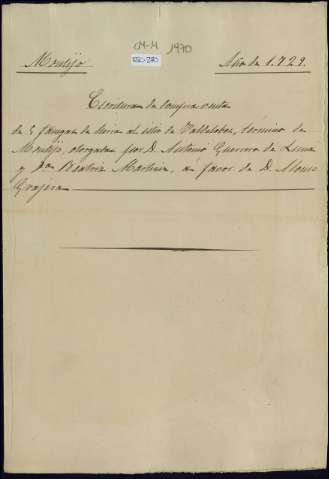 CM-M 1970
Montijo Año de 1.729.
Escritura de compra venta
de 5 fanegas de tierra al sitio de Valdelobos, término de
Montijo, otorgada por D. Antonio Guerrero de Luna
y por Beatriz Martinez, á favor de D. Alonso
Grajera